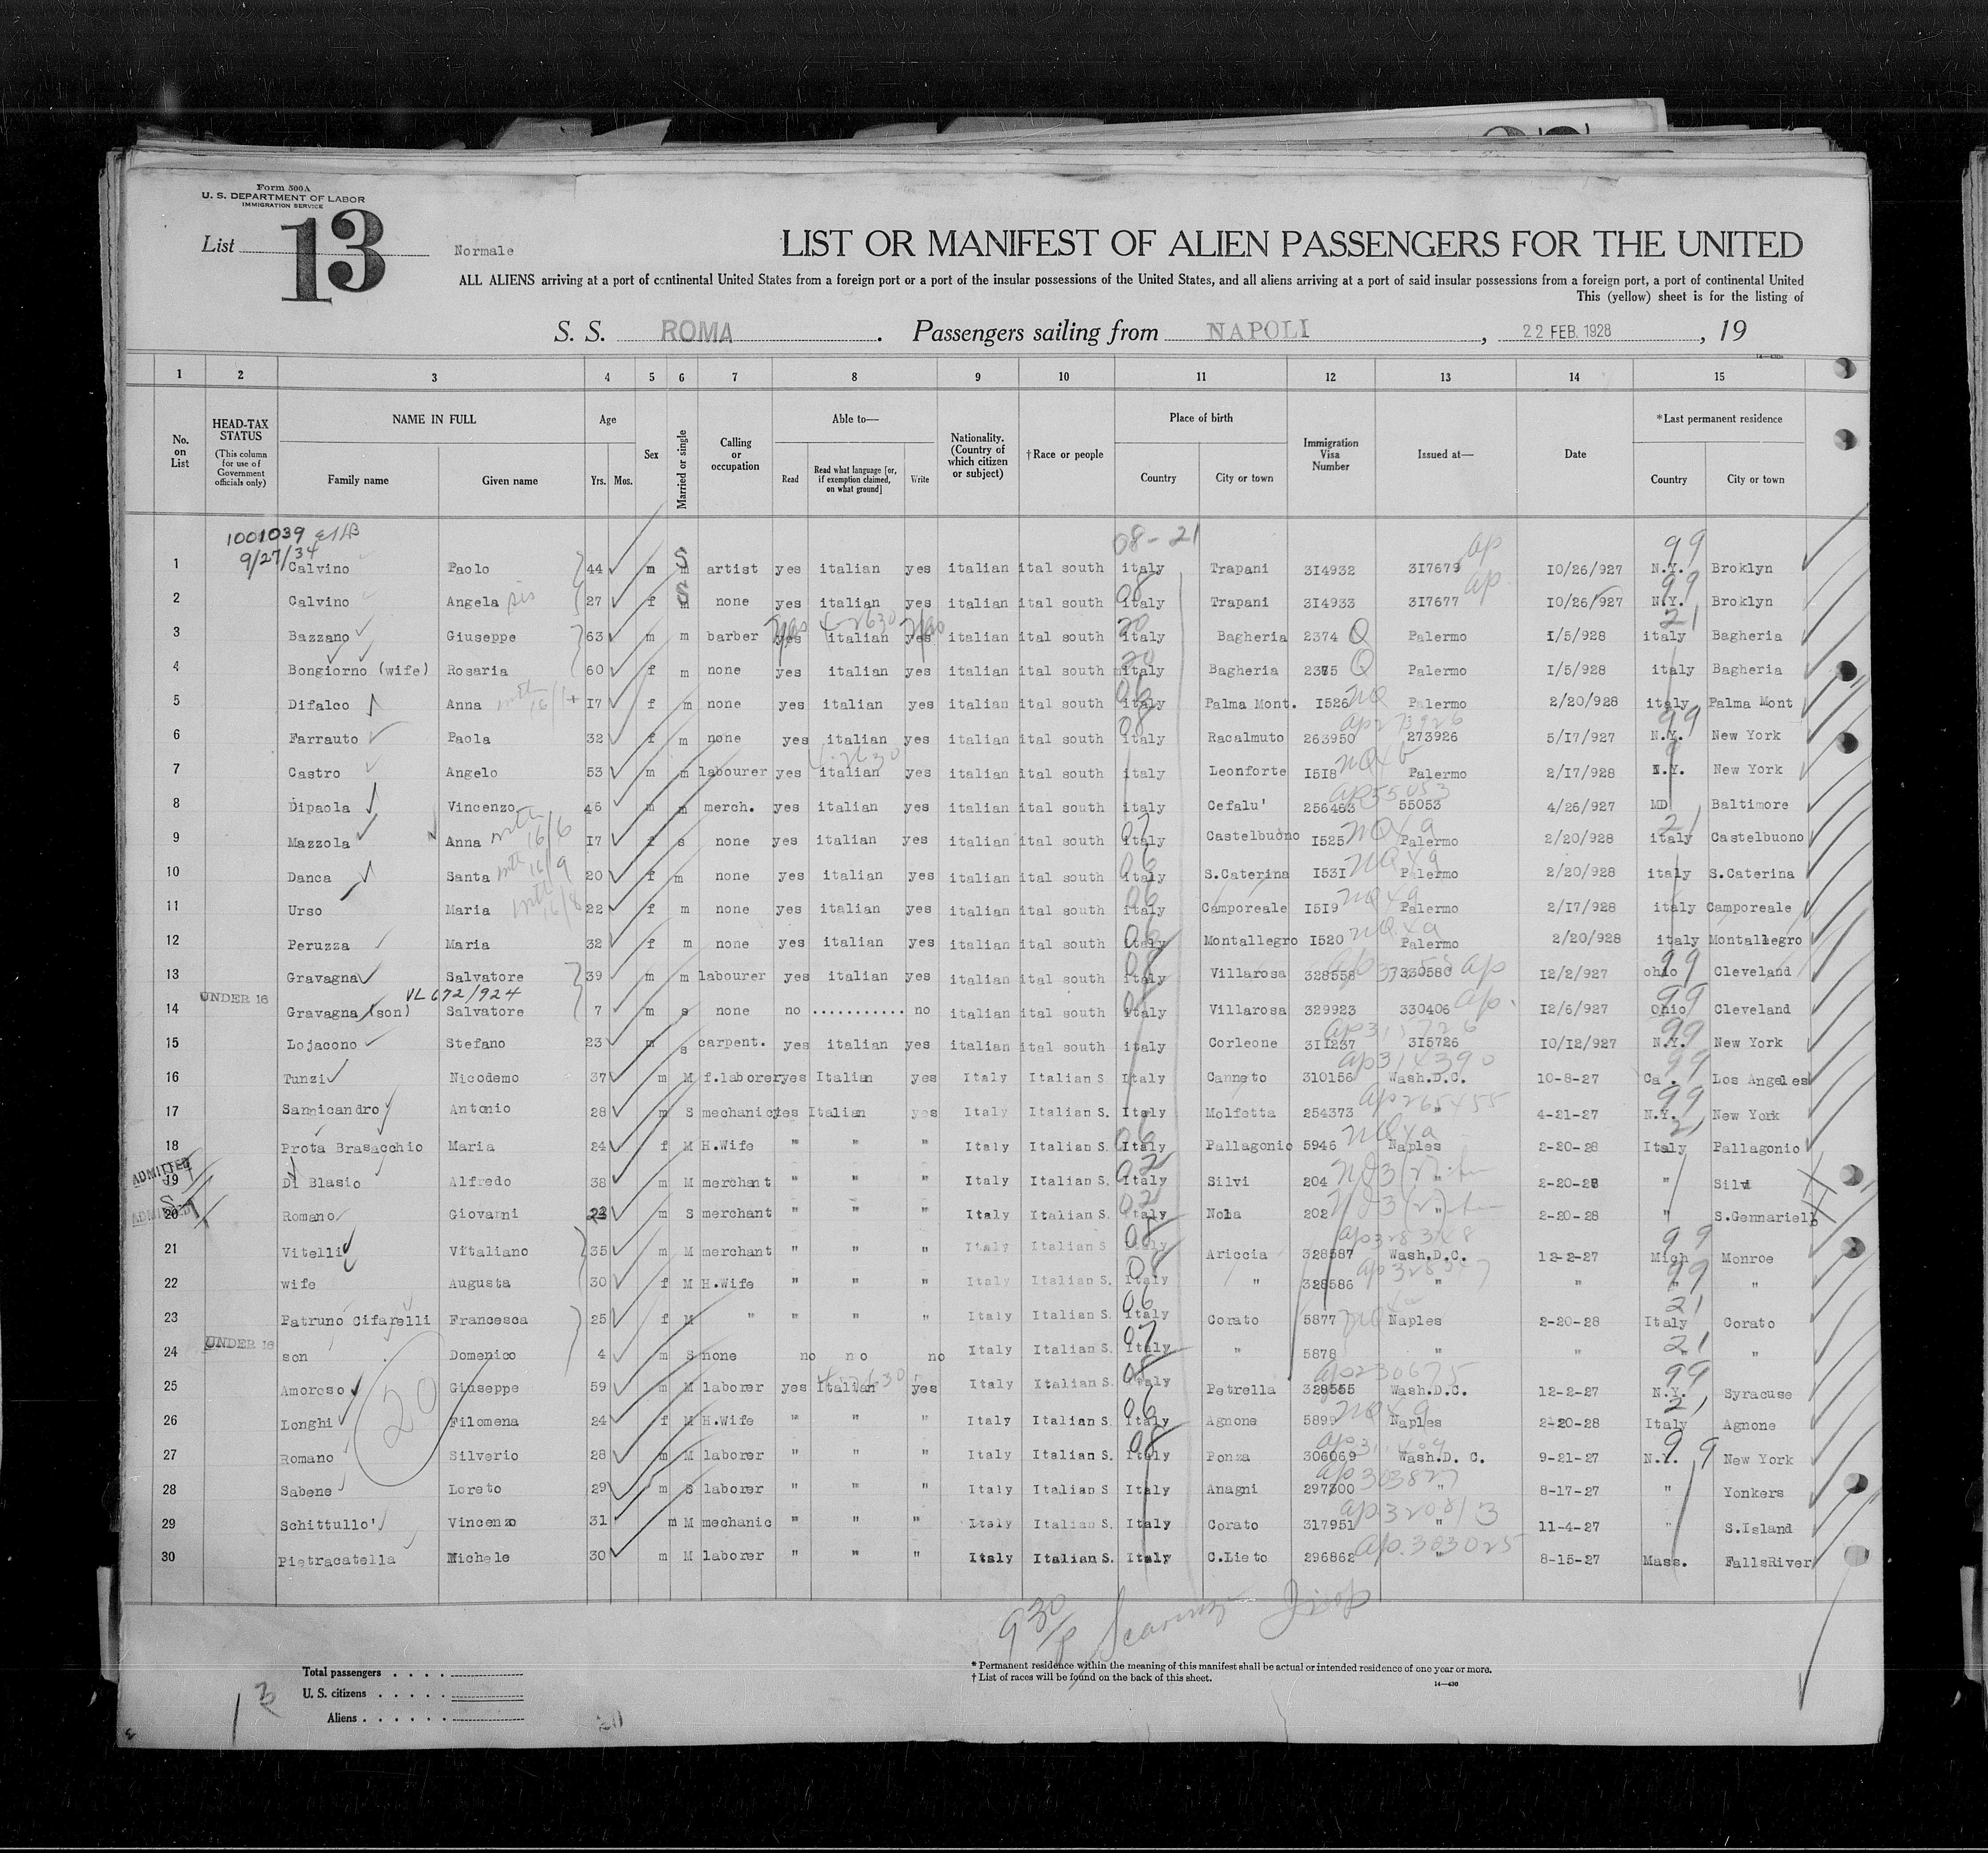 Form 500A
U. S. DEPARTMENT OF LABOR
IMMIGRATION SERVICE
List 13 Normale
LIST OR MANIFEST OF ALIEN PASSENGERS FOR THE UNITED
ALL ALIENS arriving at a port of continental United States from a foreign port or a port of the insular possessions of the United States, and all aliens arriving at a port of said insular possessions from a foreign port, a port of continental United
This (yellow) sheet is for the listing of
S. S. ROMA. Passengers sailing from NAPOLI, 22 FEB. 1928, 19
1 2 3 4 5 6 7 8 9 10 11 12 13 14 15
No. on List HEAD-TAX STATUS (This column for use of Government officials only) NAME IN FULL Family name Given name Age Yrs. Mos. Sex Married or single Calling or occupation Able to— Read Read what language [or, if exemption claimed, on what ground] Write Nationality. (Country of which citizen or subject) †Race or people Place of birth Country City or town Immigration Visa Number Issued at— Date *Last permanent residence Country City or town
1001039 08-21 99
9/27/34
1 Calvino Paolo 44 m m S artist yes italian yes italian ital south italy Trapani 3I4932 3I7679 ap I0/26/927 N.Y. Broklyn
2 Calvino Angela sis 27 f m S none yes italian yes italian ital south italy Trapani 3I4933 3I7677 ap I0/26/927 N.Y. Broklyn
3 Bazzano Giuseppe 63 m m barber yes italian yes italian ital south italy Bagheria 2374 Q Palermo I/5/928 italy Bagheria
4 Bongiorno (wife) Rosaria 60 f m none yes italian yes italian ital south italy Bagheria 2375 Q Palermo I/5/928 italy Bagheria
5 Difalco Anna I7 f m none yes italian yes italian ital south italy Palma Mont. I526 NQ Palermo 2/20/928 italy Palma Mont
6 Farrauto Paola 32 f m none yes italian yes italian ital south italy Racalmuto 263950 273926 5/I7/927 N.Y. New York
7 Castro Angelo 53 m m labourer yes italian yes italian ital south italy Leonforte I5I8 Palermo 2/I7/928 N.Y. New York
8 Dipaola Vincenzo 46 m m merch. yes italian yes italian ital south italy Cefalu' 256463 55053 4/26/927 MD Baltimore
9 Mazzola Anna I7 f s none yes italian yes italian ital south italy Castelbuono I525 Palermo 2/20/928 italy Castelbuono
10 Danca Santa 20 f m none yes italian yes italian ital south italy S.Caterina I53I Palermo 2/20/928 italy S.Caterina
11 Urso Maria 22 f m none yes italian yes italian ital south italy Camporeale I5I9 Palermo 2/I7/928 italy Camporeale
12 Peruzza Maria 32 f m none yes italian yes italian ital south italy Montallegro I520 Palermo 2/20/928 italy Montallegro
13 Gravagna Salvatore 39 m m labourer yes italian yes italian ital south italy Villarosa 328558 330580 ap I2/2/927 ohio Cleveland
UNDER 16 VL 672/924
14 Gravagna (son) Salvatore 7 m s none no ........... no italian ital south italy Villarosa 329923 330406 ap. I2/6/927 Ohio Cleveland
15 Lojacono Stefano 23 m s carpent. yes italian yes italian ital south italy Corleone 3II237 3I5726 I0/I2/927 N.Y. New York
16 Tunzi Nicodemo 37 m M f.laborer yes Italian yes Italy Italian S Italy Canneto 310156 ap314390 Wash.D.C. 10-8-27 Ca. Los Angeles
17 Samicandro Antonio 28 m S mechanic yes Italian yes Italy Italian S. Italy Molfetta 254373 ap265455 " 4-21-27 N.Y. New York
18 Prota Brasacchio Maria 24 f M H.Wife " " " Italy Italian S. Italy Pallagonio 5946 Naples 2-20-28 Italy Pallagonio
ADMITTED
19 Di Blasio Alfredo 38 m M merchant " " " Italy Italian S. Italy Silvi 204 " 2-20-28 " Silvi
ADMITTED
20 Romano Giovanni 23 m S merchant " " " Italy Italian S. Italy Nola 202 " 2-20-28 " S.Gennariello
21 Vitelli Vitaliano 35 m M merchant " " " Italy Italian S Italy Ariccia 328587 ap328348 Wash.D.C. 12-2-27 Mich Monroe
22 wife Augusta 30 f M H.Wife " " " Italy Italian S. Italy " 328586 ap328347 " " " "
23 Patruno Cifarelli Francesca 25 f M " " " " Italy Italian S. Italy Corato 5877 Naples 2-20-28 Italy Corato
UNDER 16
24 son Domenico 4 m S none no no no Italy Italian S. Italy " 5878 " " " "
25 Amoroso Giuseppe 59 m M laborer yes Italian yes Italy Italian S. Italy Petrella 328555 ap230675 Wash.D.C. 12-2-27 N.Y. Syracuse
26 Longhi Filomena 24 f M H.Wife " " " Italy Italian S. Italy Agnone 5899 Naples 2-20-28 Italy Agnone
27 Romano Silverio 28 m M laborer " " " Italy Italian S. Italy Ponza 306069 Wash.D. C. 9-21-27 N.Y. New York
28 Sabene Loreto 29 m S laborer " " " Italy Italian S Italy Anagni 297300 ap303827 " 8-17-27 " Yonkers
29 Schittullo' Vincenzo 31 m M mechanic " " " Italy Italian S. Italy Corato 317951 ap.320813 " 11-4-27 " S.Island
30 Pietracatella Michele 30 m M laborer " " " Italy Italian S. Italy C.Lieto 296862 ap.303025 " 8-15-27 Mass. FallsRiver
20
930/P
Total passengers
U. S. citizens
Aliens
* Permanent residence within the meaning of this manifest shall be actual or intended residence of one year or more.
† List of races will be found on the back of this sheet.
14—430
13